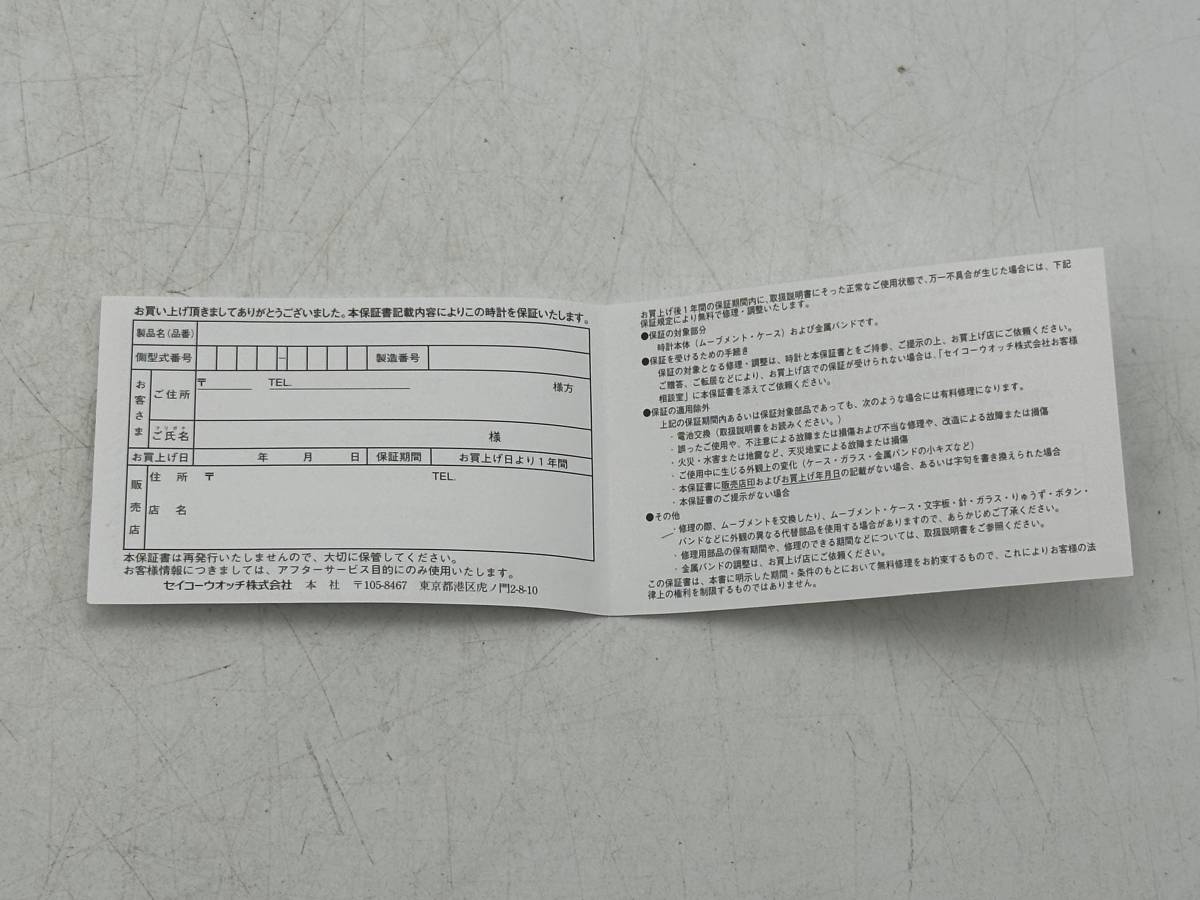 お買い上げ頂きましてありがとうございました。本保証書記載内容によりこの時計を保証いたします。
製品名(品番)
側型式番号 － 製造番号
お客さま
ご住所 〒 TEL. 様方
フリガナ
ご氏名 様
お買上げ日 年 月 日 保証期間 お買上げ日より1年間
販売店
住所 〒 TEL.
店名
本保証書は再発行いたしませんので、大切に保管してください。
お客様情報につきましては、アフターサービス目的にのみ使用いたします。
セイコーウオッチ株式会社 本 社 〒105-8467 東京都港区虎ノ門2-8-10
お買上げ後1年間の保証期間内に、取扱説明書にそった正常なご使用状態で、万一不具合が生じた場合には、下記
保証規定により無料で修理・調整いたします。
●保証の対象部分
時計本体(ムーブメント・ケース)および金属バンドです。
●保証を受けるための手続き
保証の対象となる修理・調整は、時計と本保証書とをご持参、ご提示の上、お買上げ店にご依頼ください。
ご贈答、ご転居などにより、お買上げ店での保証が受けられない場合は、「セイコーウオッチ株式会社お客様
相談室」に本保証書を添えてご依頼ください。
●保証の適用除外
上記の保証期間内あるいは保証対象部品であっても、次のような場合には有料修理になります。
・電池交換(取扱説明書をお読みください。)
・誤ったご使用や、不注意による故障または損傷および不当な修理や、改造による故障または損傷
・火災・水害または地震など、天災地変による故障または損傷
・ご使用中に生じる外観上の変化(ケース・ガラス・金属バンドの小キズなど)
・本保証書に販売店印およびお買上げ年月日の記載がない場合、あるいは字句を書き換えられた場合
・本保証書のご提示がない場合
●その他
・修理の際、ムーブメントを交換したり、ムーブメント・ケース・文字板・針・ガラス・りゅうず・ボタン・
バンドなどに外観の異なる代替部品を使用する場合がありますので、あらかじめご了承ください。
・修理用部品の保有期間や、修理のできる期間などについては、取扱説明書をご参照ください。
・金属バンドの調整は、お買上げ店にご依頼ください。
この保証書は、本書に明示した期間・条件のもとにおいて無料修理をお約束するもので、これによりお客様の法
律上の権利を制限するものではありません。